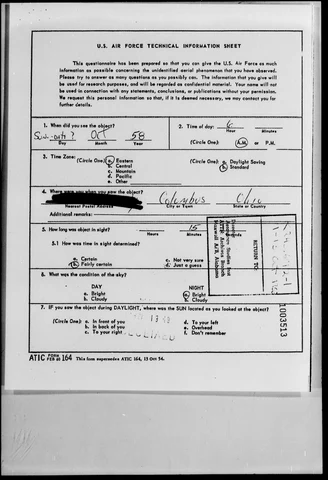 U.S. AIR FORCE TECHNICAL INFORMATION SHEET
This questionnaire has been prepared so that you can give the U.S. Air Force as much
information as possible concerning the unidentified aerial phenomenon that you have observed.
Please try to answer as many questions as you possibly can. The information that you give will
be used for research purposes, and will be regarded as confidential material. Your name will not
be used in connection with any statements, conclusions, or publications without your permission.
We request this personal information so that, if it is deemed necessary, we may contact you for
further details.
1. When did you see the object?
Oct 58
Day Month Year
2. Time of day: 6
Hour Minutes
(Circle One): A.M. or P.M.
3. Time Zone:
(Circle One): a. Eastern
b. Central
c. Mountain
d. Pacific
e. Other
(Circle One): a. Daylight Saving
b. Standard
4. Where were you when you saw the object?
Columbus Ohio
Nearest Postal Address City or Town State or Country
Additional remarks:
5. How long was object in sight? 15
Hours Minutes Seconds
5.1 How was time in sight determined?
a. Certain c. Not very sure
b. Fairly certain d. Just a guess
6. What was the condition of the sky?
DAY NIGHT
a. Bright a. Bright
b. Cloudy b. Cloudy
7. IF you saw the object during DAYLIGHT, where was the SUN located as you looked at the object?
(Circle One): a. In front of you d. To your left
b. In back of you e. Overhead
c. To your right f. Don't remember
RETURN TO
Maxwell AFB, Alabama
1003513
ATIC FORM FEB 60 164 This form supersedes ATIC 164, 13 Oct 54.